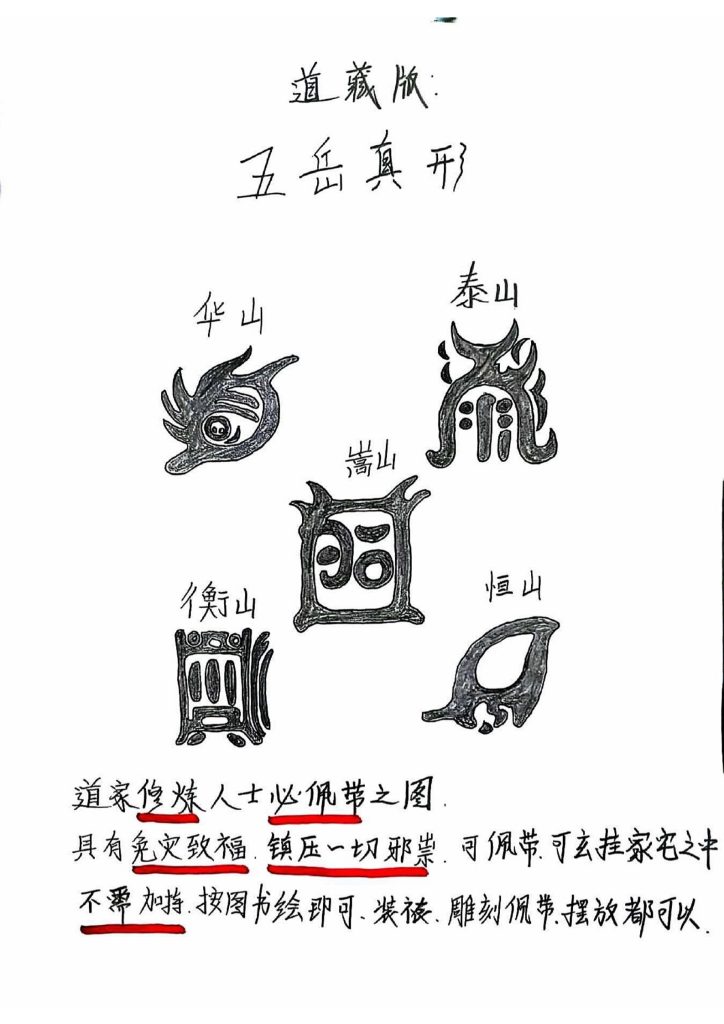 道藏版:
五岳真形
华山
泰山
嵩山
衡山
恒山
道家修炼人士必佩带之图.
具有免灾致福.镇压一切邪祟.可佩带.可玄挂家宅之中
不需加持.按图书绘即可、装裱、雕刻佩带、摆放都可以.